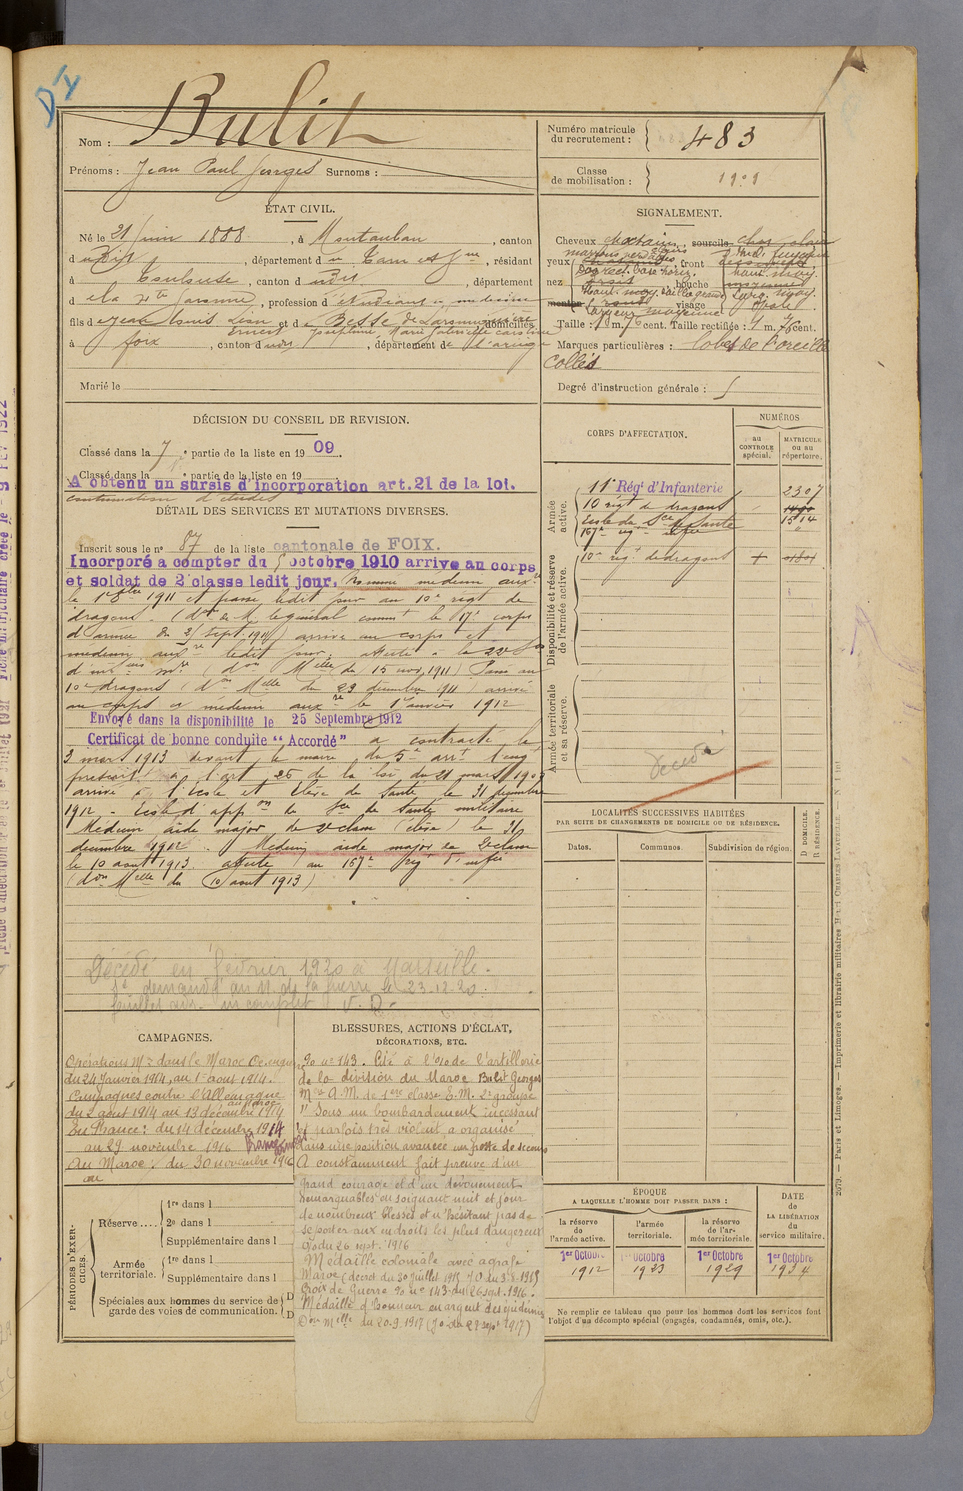 Bulit
Nom :
Prénoms : Jean Paul Georges Surnoms :
Numéro matricule
du recrutement : 483
Classe
de mobilisation : 1909
ÉTAT CIVIL.
Né le 21 juin 1888, à Montauban, canton
dudit, département du Tarn et Gne, résidant
à Toulouse, canton dudit, département
de la Hte Garonne, profession d'étudiant en médecine
fils de Jean Louis Léon Ernest et de Besse de Laromiguière Joséphine Marie Gabrielle Caroline domiciliés
à Foix, canton dudit, département de l'Ariège
Marié le
SIGNALEMENT.
Cheveux chatains, sourcils
yeux, front
nez, bouche
menton, visage
Taille : 1 m. 76 cent. Taille rectifiée : 1 m. 76 cent.
Marques particulières : lobes de l'oreille
Collés
Degré d'instruction générale : 5
DÉCISION DU CONSEIL DE REVISION.
Classé dans la 7e partie de la liste en 1909.
Classé dans la e partie de la liste en 19
A obtenu un sursis d'incorporation art. 21 de la loi.
continuation d'études
DÉTAIL DES SERVICES ET MUTATIONS DIVERSES.
Inscrit sous le no 87 de la liste cantonale de FOIX.
Incorporé à compter du 5 octobre 1910 arrivé au corps
et soldat de 2e classe ledit jour. Nommé médecin auxre
le 1911 et passé ledit jour au 10e régt de
dragons. (Don de M. le général commt le 17e corps
d'armée du 2 sept. 1911) arrivé au corps et
médecin auxre ledit jour. Affecté à la 22e Son
d'infiers mres don Melle du 15 nov. 1911) Passé au
10e dragons (don Melle du 23 décembre 1911) arrivé
au corps et médecin auxre le 1er janvier 1912
Envoyé dans la disponibilité le 25 Septembre 1912
Certificat de bonne conduite "Accordé" a contracté le
3 mars 1913 devant le maire du 5e arrt l'engt
prescrit à l'art 26 de la loi du 21 mars 1905
arrivé à l'école et élève de santé le 31 décembre
1912 - Ecole d'appon de Sce de Santé militaire
Médecin aide major de 2e classe (élève) le 31
décembre 1912. Médecin aide major de 2e classe
le 10 août 1913 affecté au 157e Rég d'infie
(don Melle du 10 août 1913)
Décédé en février 1920 à Marseille.
demandé au M. de la guerre le 23-12-20.
CORPS D'AFFECTATION.
NUMÉROS
au
CONTROLE
spécial.
MATRICULE
ou au
répertoire.
Armée
active.
11e Régt d'Infanterie 2307
10 régt de dragons 1490
Ecole de Sce de Santé 1514
157e régt infie "
Disponibilité et réserve
de l'armée active.
10e régt de dragons
Armée territoriale
et sa réserve.
Décédé
LOCALITÉS SUCCESSIVES HABITÉES
PAR SUITE DE CHANGEMENTS DE DOMICILE OU DE RÉSIDENCE.
Dates.
Communes.
Subdivision de région.
D DOMICILE.
R RÉSIDENCE.
CAMPAGNES.
Opérations Mres dans le Maroc Oriental
du 24 Janvier 1914 au 1er aout 1914.
Campagnes contre l'Allemagne
au Maroc
du 2 aout 1914 au 13 décembre 1914
En France : du 14 décembre 1914
au 29 novembre 1916
Au Maroc : du 30 novembre 1916
au
BLESSURES, ACTIONS D'ÉCLAT,
DÉCORATIONS, ETC.
go no 143. Cité à l'o/o de l'artillerie
de la division du Maroc Bulit Georges
Min A.M. de 1ère classe E.M. 2e groupe
"Sous un bombardement incessant
et parfois très violent a organisé
dans une position avancée un poste de secours
A constamment fait preuve d'un
grand courage et d'un dévouement
remarquables en soignant nuit et jour
de nombreux blessés et n'hésitant pas de
se porter aux endroits les plus dangereux
o/o du 26 sept. 1916
Médaille coloniale avec agrafe
Maroc (décret du 30 juillet 1915 JO du 3.8.1915
Croix de Guerre go no 143 du 26 sept. 1916.
Médaille d'honneur en argent des épidémies
Don Mlle du 20.9.1917 (Jo du 28 sept 1917)
PÉRIODES D'EXERCICES.
Réserve....
1re dans l
2e dans l
Supplémentaire dans l
Armée
territoriale.
1re dans l
Supplémentaire dans l
Spéciales aux hommes du service de
garde des voies de communication.
D
D
ÉPOQUE
A LAQUELLE L'HOMME DOIT PASSER DANS :
DATE
DE
LA LIBÉRATION
du
service militaire.
la réserve
de
l'armée active.
l'armée
territoriale.
la réserve
de l'armée territoriale.
1er Octobre 1912
1er Octobre 1923
1er Octobre 1929
1er Octobre 1934
Ne remplir ce tableau que pour les hommes dont les services font
l'objet d'un décompte spécial (engagés, condamnés, omis, etc.).
2079. — Paris et Limoges. — Imprimerie et librairie militaires Henri CHARLES-LAVAUZELLE.